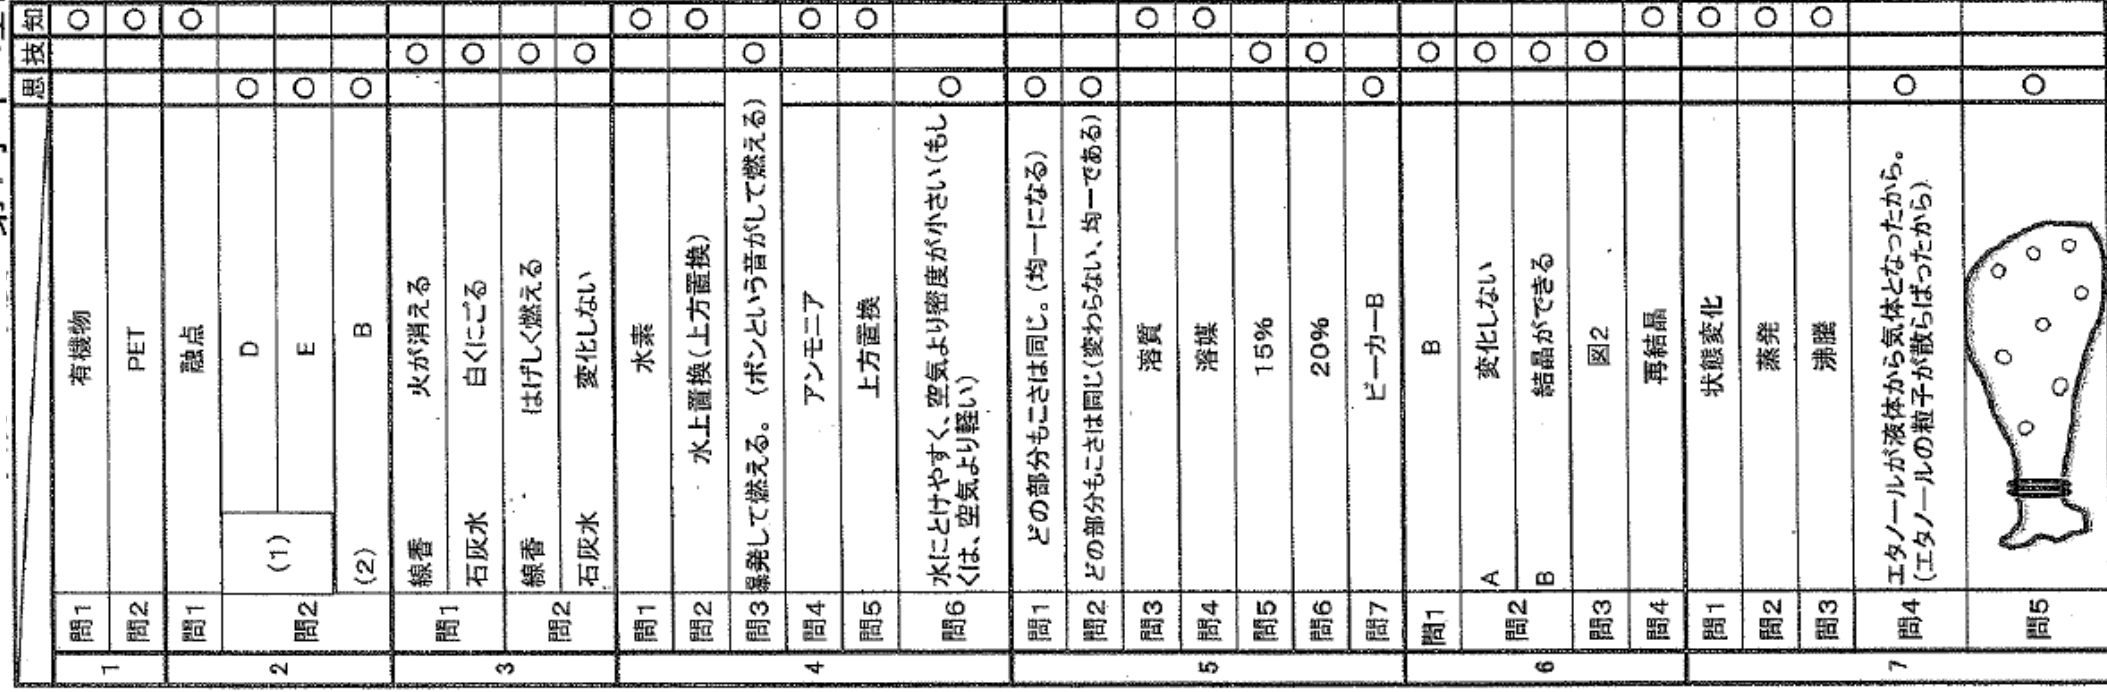 思 技 知
1 問1 有機物 ○
問2 PET ○
2 問1 融点 ○
問2 (1) D ○
E ○
(2) B ○
3 問1 線香 火が消える ○
石灰水 白くにごる ○
問2 線香 はげしく燃える ○
石灰水 変化しない ○
4 問1 水素 ○
問2 水上置換(上方置換) ○
問3 爆発して燃える。(ポンという音がして燃える) ○
問4 アンモニア ○
問5 上方置換 ○
問6 水にとけやすく、空気より密度が小さい(もし
くは、空気より軽い) ○
5 問1 どの部分もこさは同じ。(均一になる) ○
問2 どの部分もこさは同じ(変わらない、均一である) ○
問3 溶質 ○
問4 溶媒 ○
問5 15% ○
問6 20% ○
問7 ビーカーB ○
6 問1 B ○
問2 A 変化しない ○
B 結晶ができる ○
問3 図2 ○
問4 再結晶 ○
7 問1 状態変化 ○
問2 蒸発 ○
問3 沸騰 ○
問4 エタノールが液体から気体となったから。
(エタノールの粒子が散らばったから) ○
問5 ○